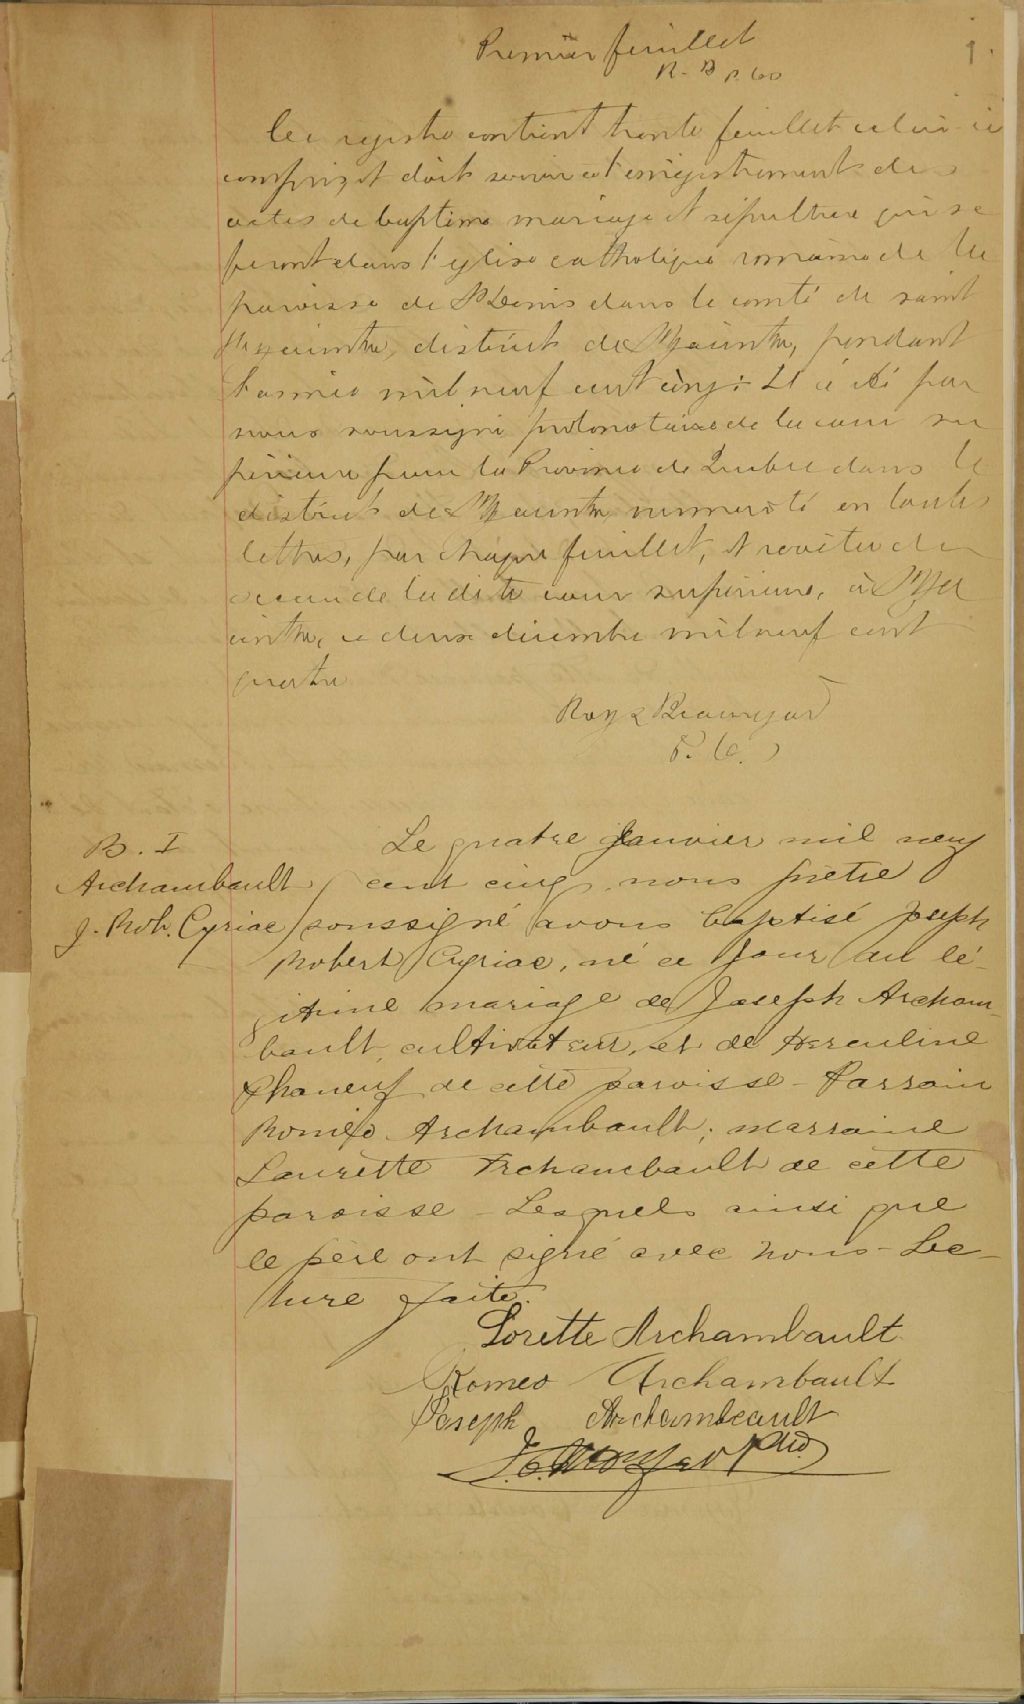 Premier feuillet
1.
R. B P. Co
Ce registre contient trente feuillet celui-ci
compris et doit servir à l'enregistrement des
actes de baptème mariage et sépulture qui se
feront dans l'église catholique romaine de la
paroisse de St Denis dans le comté de saint
Hyacinthe, district de St Hyacinthe, pendant
l'année mil neuf cent cinq. Il a été par
nous soussigné protonotaire de la cour su
périeure pour la Province de Québec dans le
district de St Hyacinthe numéroté en toutes
lettres, par chaque feuillet, et revêtu du
sceau de la dite cour supérieure, à St Hya
cinthe, ce deux décembre mil neuf cent
quatre
Roy & Beauregard
P. C. S
B. I
Archambault
J. Rob. Cyriac
Le quatre janvier mil neuf
cent cinq, nous prètre
soussigné avons baptisé Joseph
Robert Cyriac, né ce jour du lé-
gitime mariage de Joseph Archam-
bault, cultivateur, et de Herculine
Phaneuf de cette paroisse - Parrain
Roméo Archambault; marraine
Laurette Archambault de cette
paroisse - Lesquels ainsi que
le père ont signé avec nous - Lec-
ture faite.
Lorette Archambault
Romeo Archambault
Joseph Archambeault
Ptre